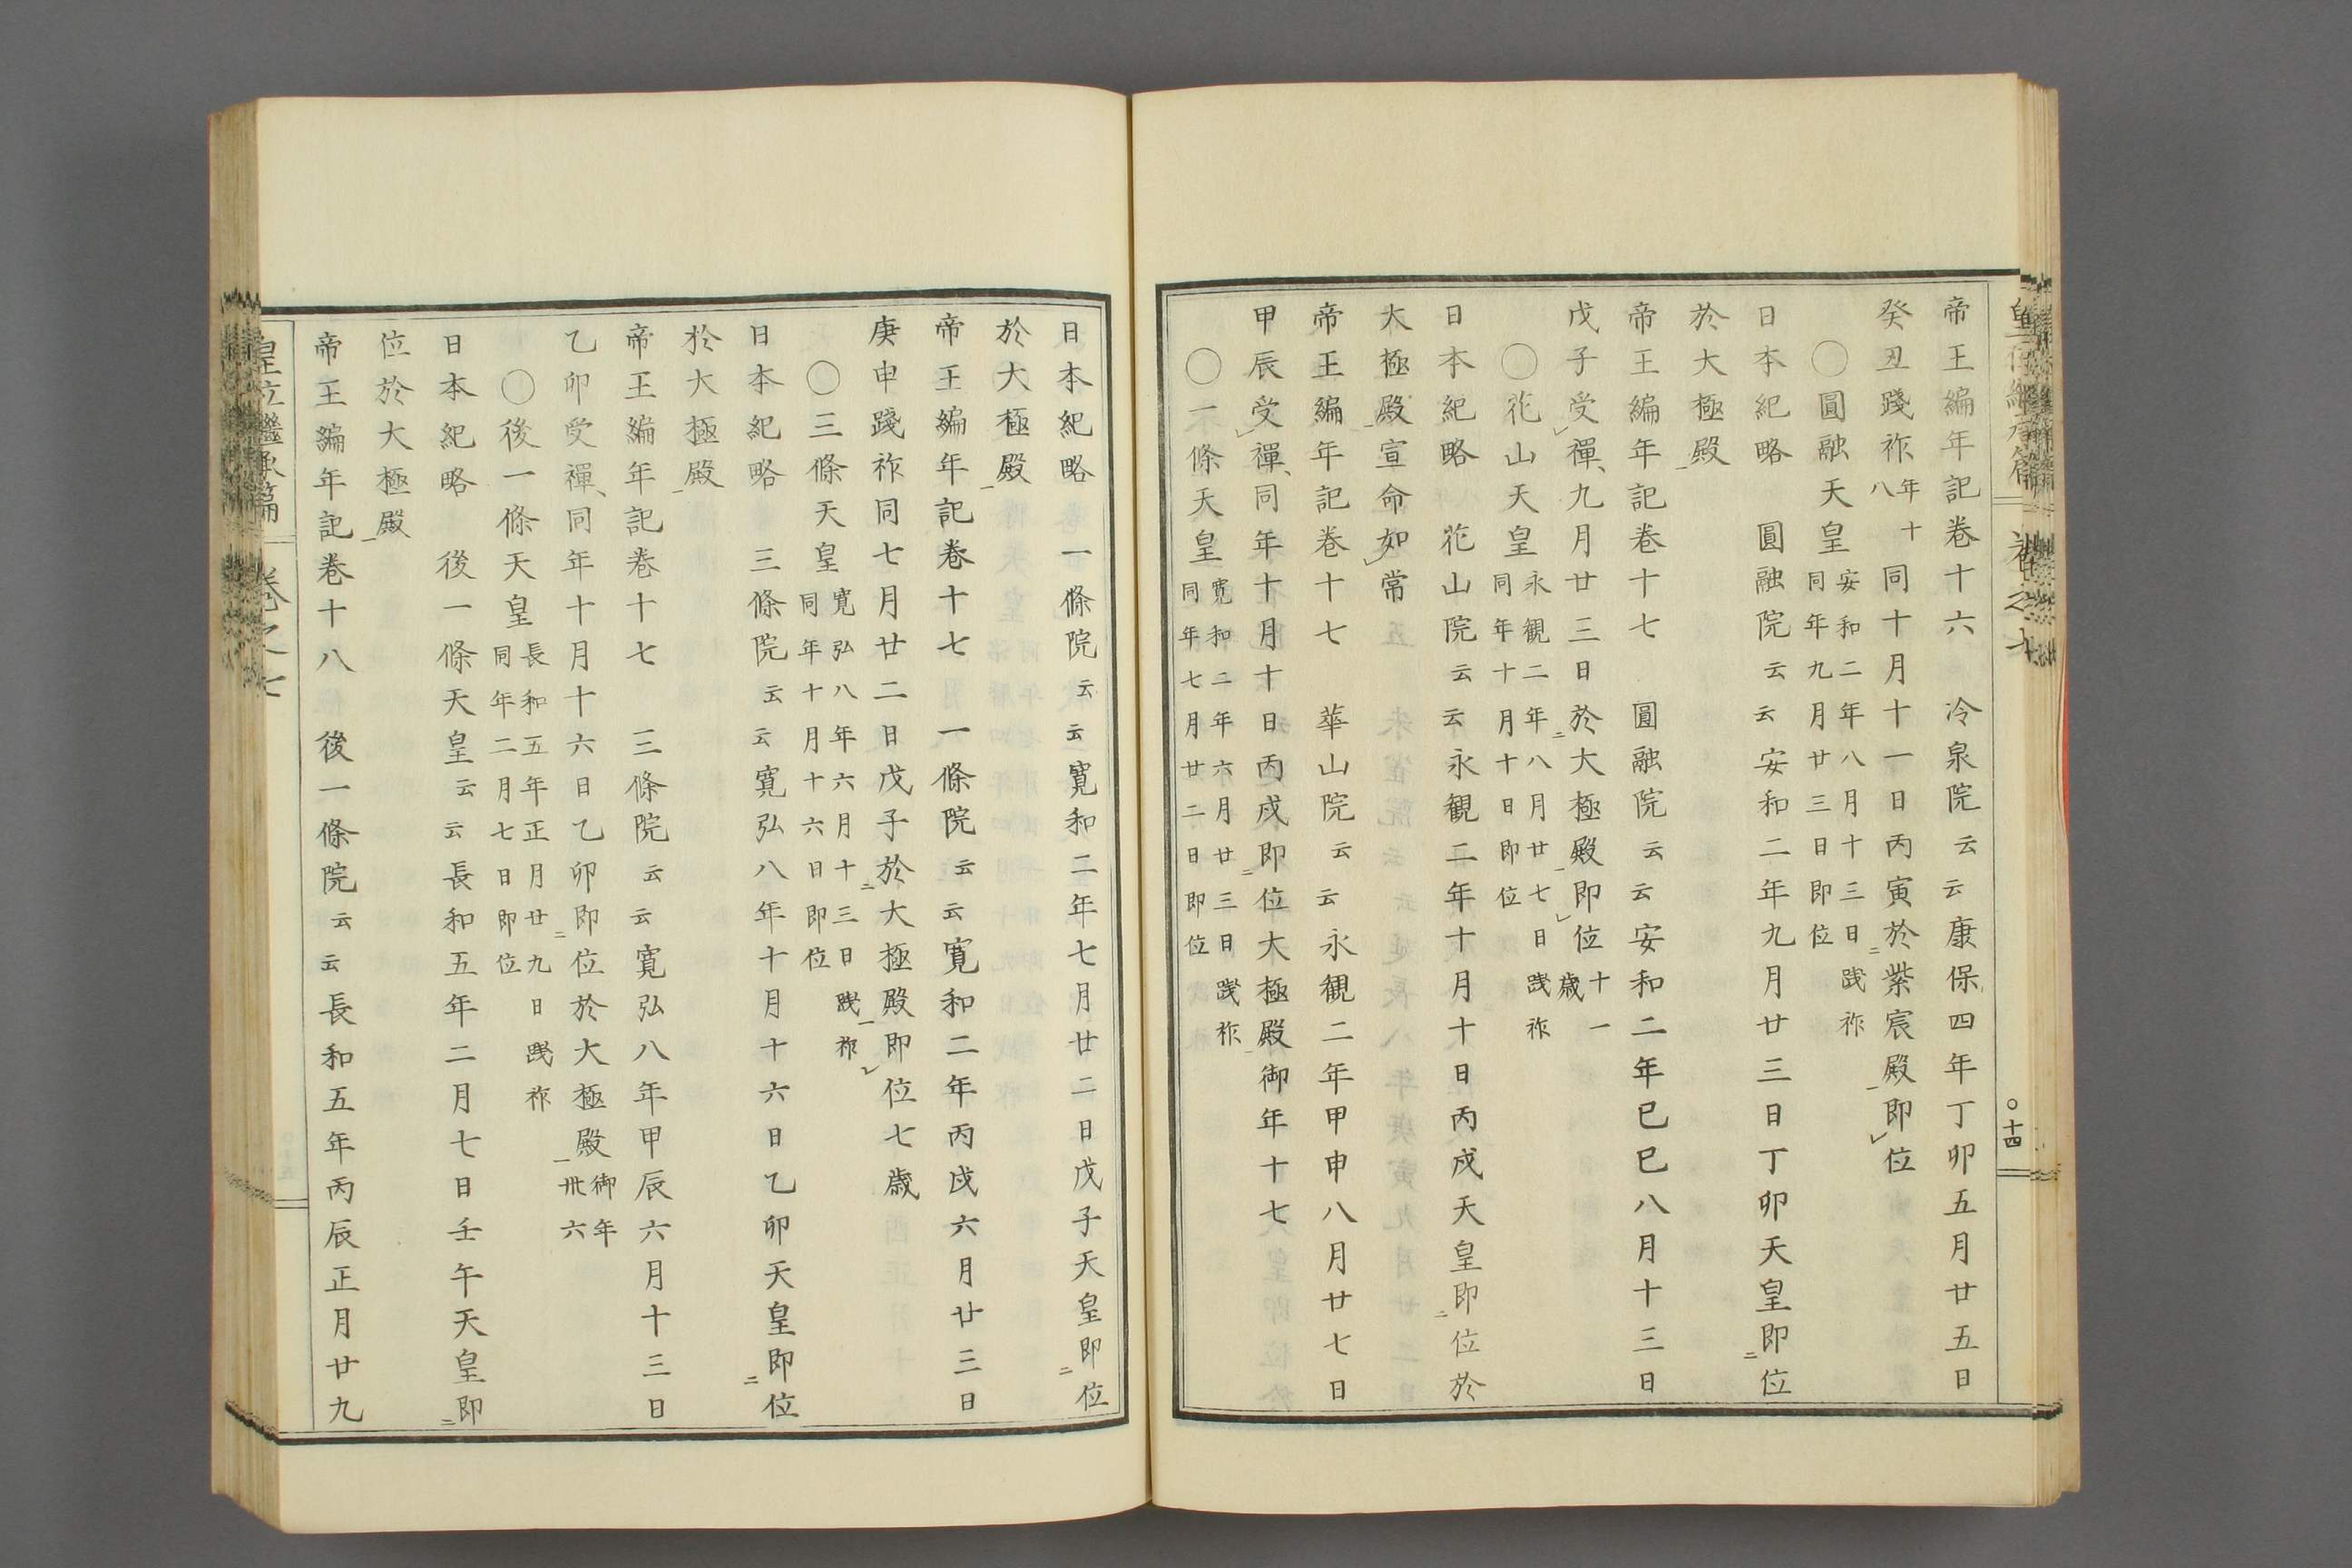 帝王編年記卷十六　冷泉院云云康保四年丁卯五月廿五日
癸丑踐祚年十八同十月十一日丙寅於紫宸殿即位
〇圓融天皇安和二年八月十三日踐祚同年九月廿三日即位
日本紀略　圓融院云云安和二年九月廿三日丁卯天皇即位
於大極殿
帝王編年記卷十七　圓融院云云安和二年巳巳八月十三日
戊子受禪、九月廿三日於大極殿即位十一歲
〇花山天皇永観二年八月廿七日踐祚同年十月十日即位
日本紀略　花山院云云永観二年十月十日丙戌天皇即位於
大極殿宣命如常
帝王編年記卷十七　華山院云云永観二年甲申八月廿七日
甲辰受禪、同年十月十日丙戌即位大極殿御年十七
〇一條天皇寛和二年六月廿三日踐祚同年七月廿二日即位
〇十四
日本紀略　一條院云云寛和二年七月廿二日戊子天皇即位
於大極殿
帝王編年記卷十七　一條院云云寛和二年丙戌六月廿三日
庚申踐祚同七月廿二日戊子於大極殿即位七歲
〇三條天皇寛弘八年六月十三日踐祚同年十月十六日即位
日本紀略　三條院云云寛弘八年十月十六日乙卯天皇即位
於大極殿
帝王編年記卷十七　三條院云云寛弘八年甲辰六月十三日
乙卯受禪、同年十月十六日乙卯即位於大極殿御年卅六
〇後一條天皇長和五年正月廿九日踐祚同年二月七日即位
日本紀略　後一條天皇云云長和五年二月七日壬午天皇即
位於大極殿
帝王編年記卷十八　後一條院云云長和五年丙辰正月廿九
皇位繼承篇　卷之七